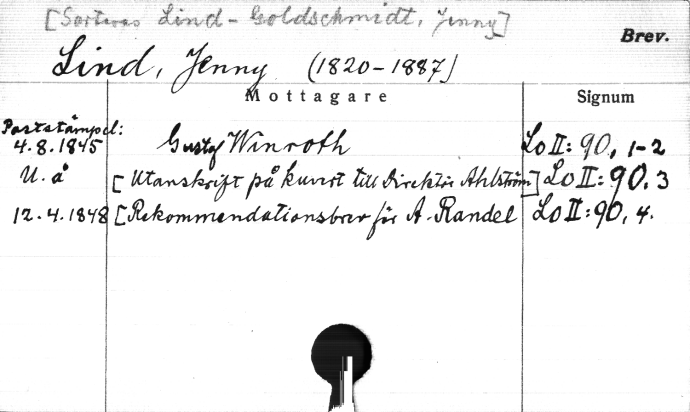 [Sorteras Lind-Goldschmidt, Jenny]
Brev.
Lind, Jenny (1820-1887)
Mottagare Signum
Poststämpel:
4.8.1845 Gustaf Winroth Lo II: 90, 1-2
U. å [Utanskrift på kuvert till Direktör Ahlström] Lo II: 90. 3
12.4.1848 [Rekommendationsbrev för A. Randel Lo II: 90, 4.